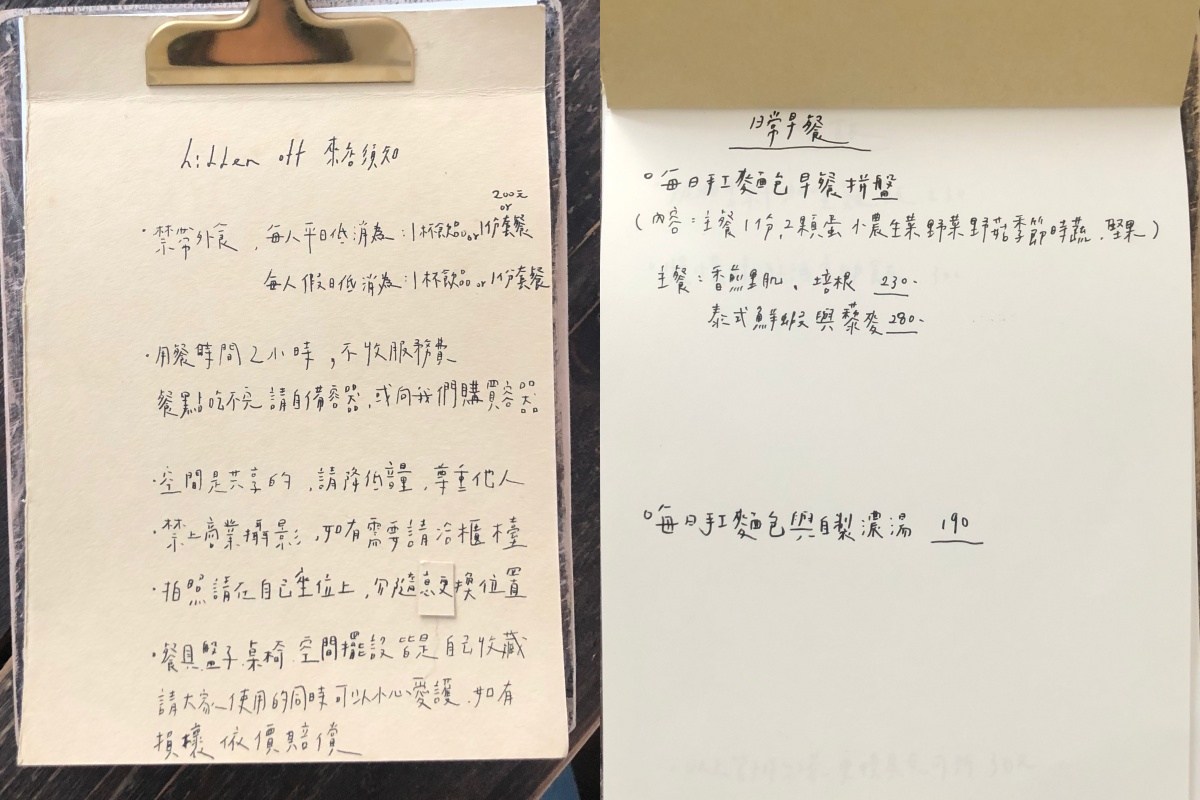 hidden off 來店須知
200元
or
・禁帶外食，每人平日低消為：1杯飲品or1份套餐
每人假日低消為：1杯飲品or1份套餐
・用餐時間2小時，不收服務費
餐點吃不完請自備容器，或向我們購買容器
・空間是共享的，請降低音量，尊重他人
・禁止商業攝影，如有需要請洽櫃檯
・拍照請在自己座位上，勿隨意更換位置
・餐具盤子.桌椅.空間擺設皆是自己收藏
請大家使用的同時可以小心愛護.如有
損壞依價賠償
日常早餐
○每日手工麵包早餐拼盤
(內容：主餐1份,2顆蛋 小農生菜野菜野菇季節時蔬.堅果)
主餐：香煎里肌、培根 230.
泰式鮮蝦與藜麥280.
○每日手工麵包與自製濃湯 190